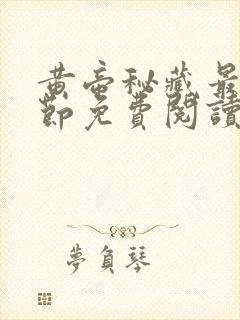 黄帝秘藏最
節免費閱讀
夢負琴